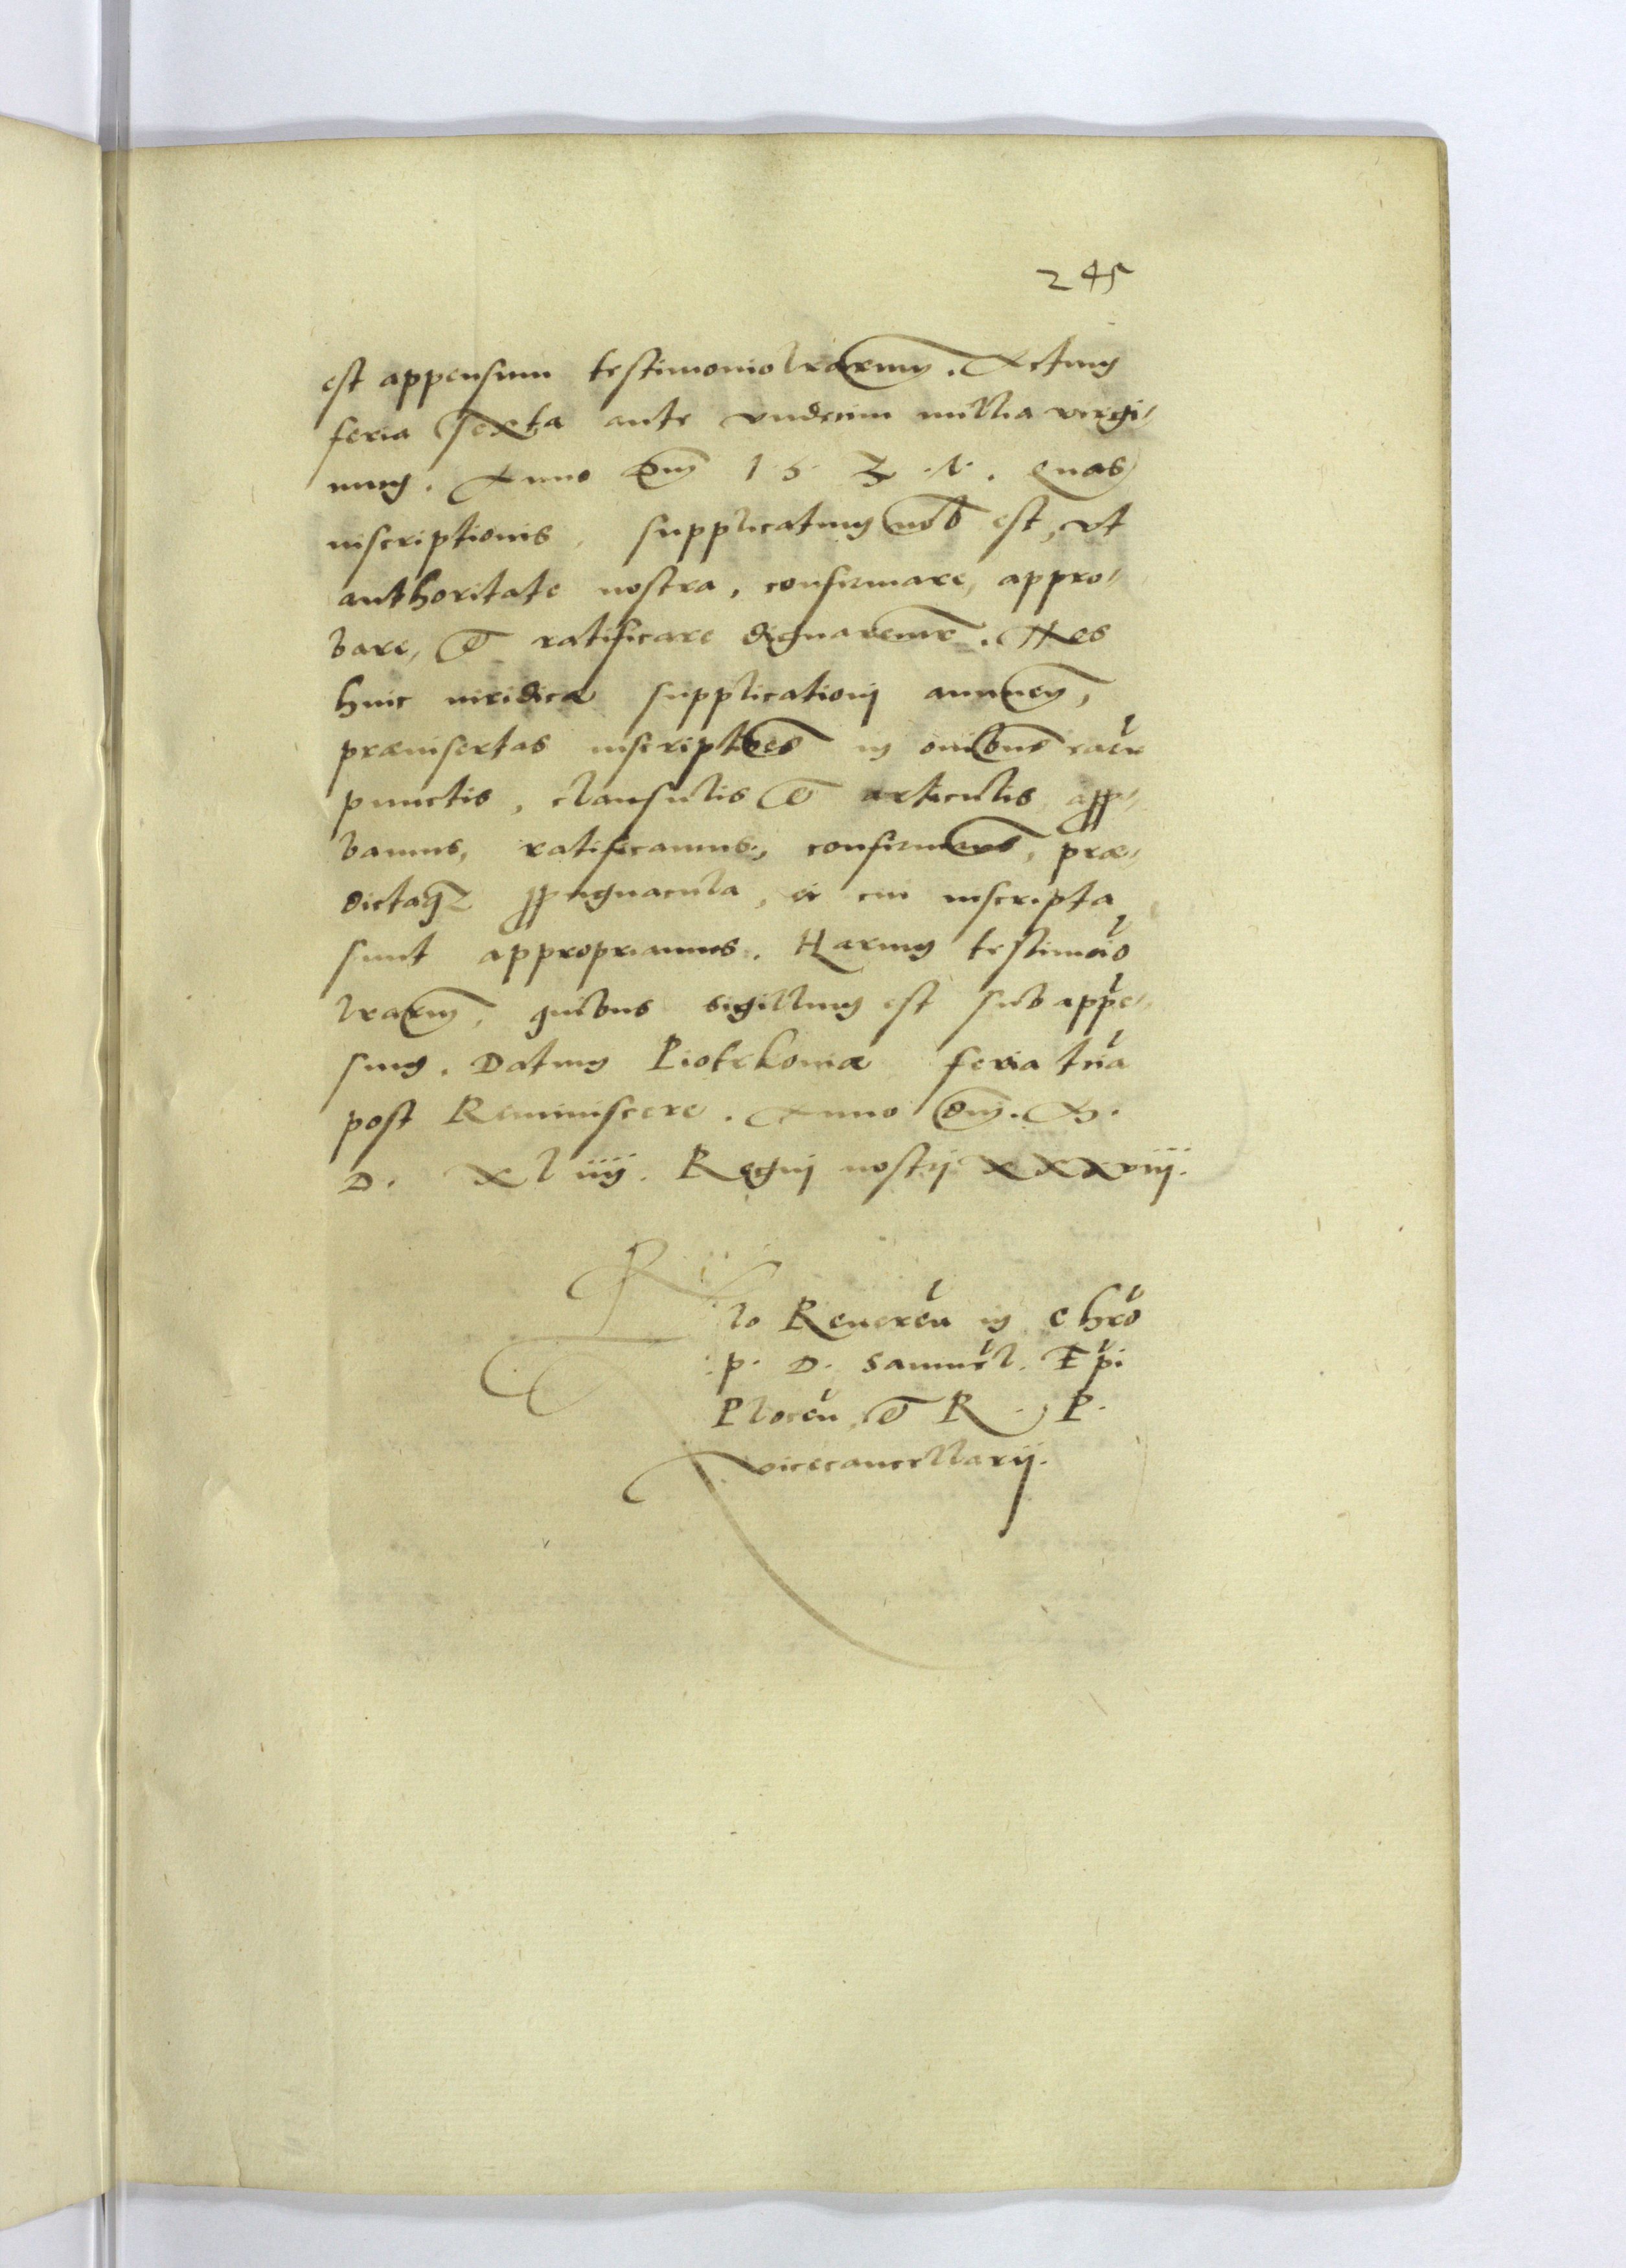 245
est appensum testimonio lrarum. Actum
feria sexta ante vndecim millia virgi-
num. Anno Dni 1 5 3 . Quas
inscriptionis, supplicatum nob est, vt
authoritate nostra, confirmare, appro-
bare, et ratificare dignaremr. Nos
huic iuridicæ supplicationj annuen,
præinsertas inscriptōes in omibus eaꝝ
punctis, clausulis et articulis appro-
bamus, ratificamus, confirmams, præ-
dictaq3 propugnacula, ei cui inscripta
sunt appropriamus. Harum testimōio
lrarum, quibus sigillum est subappē-
sum. Datum Piotrkoviæ feria tr̃ia
post Reminiscere. Anno Dni. M.
D. Xl iiij. Regnj nostrj XXXviij.
R
lo Reuerēn in Chrō
p. D. Samuēl. Ep̃i
Plocēn et R. P.
vicecancellarij.